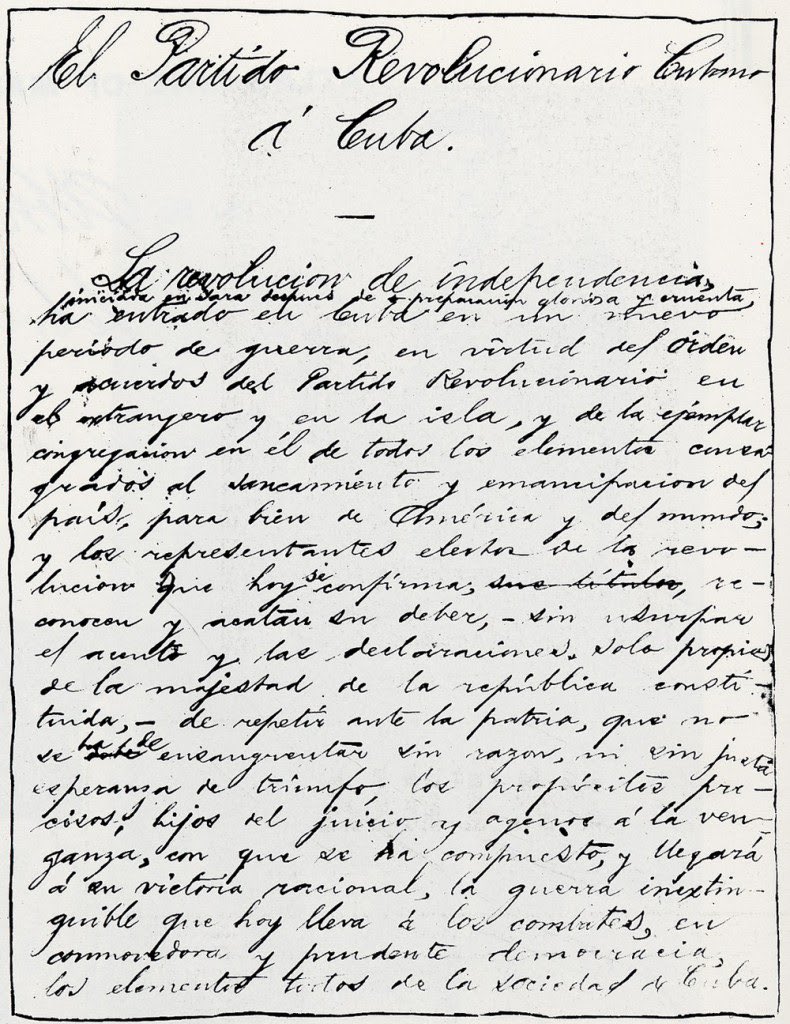 El Partido Revolucionario Cubano
á Cuba.
La revolucion de independencia,
iniciada en Yara despues de preparacion gloriosa y cruenta,
ha entrado en Cuba en un nuevo
período de guerra, en virtud del órden
y acuerdos del Partido Revolucionario en
el extranjero y en la isla, y de la ejemplar
congregacion en él de todos los elementos consa-
grados al saneamiento y emancipacion del
país, para bien de América y del mundo;
y los representantes electos de la revo-
lucion que hoy se confirma, sus títulos, re-
conocen y acatan su deber, - sin usurpar
el acento y las declaraciones solo propias
de la majestad de la república consti-
tuida, - de repetir ante la patria, que no
se ha de ensangrentar sin razon, ni sin justa
esperanza de triunfo, los propósitos pre-
cisos, hijos del juicio y agenos á la ven-
ganza, con que se ha compuesto, y llegará
á su victoria racional, la guerra inextin-
guible que hoy lleva á los combates, en
conmovedora y prudente democracia,
los elementos todos de la sociedad de Cuba.